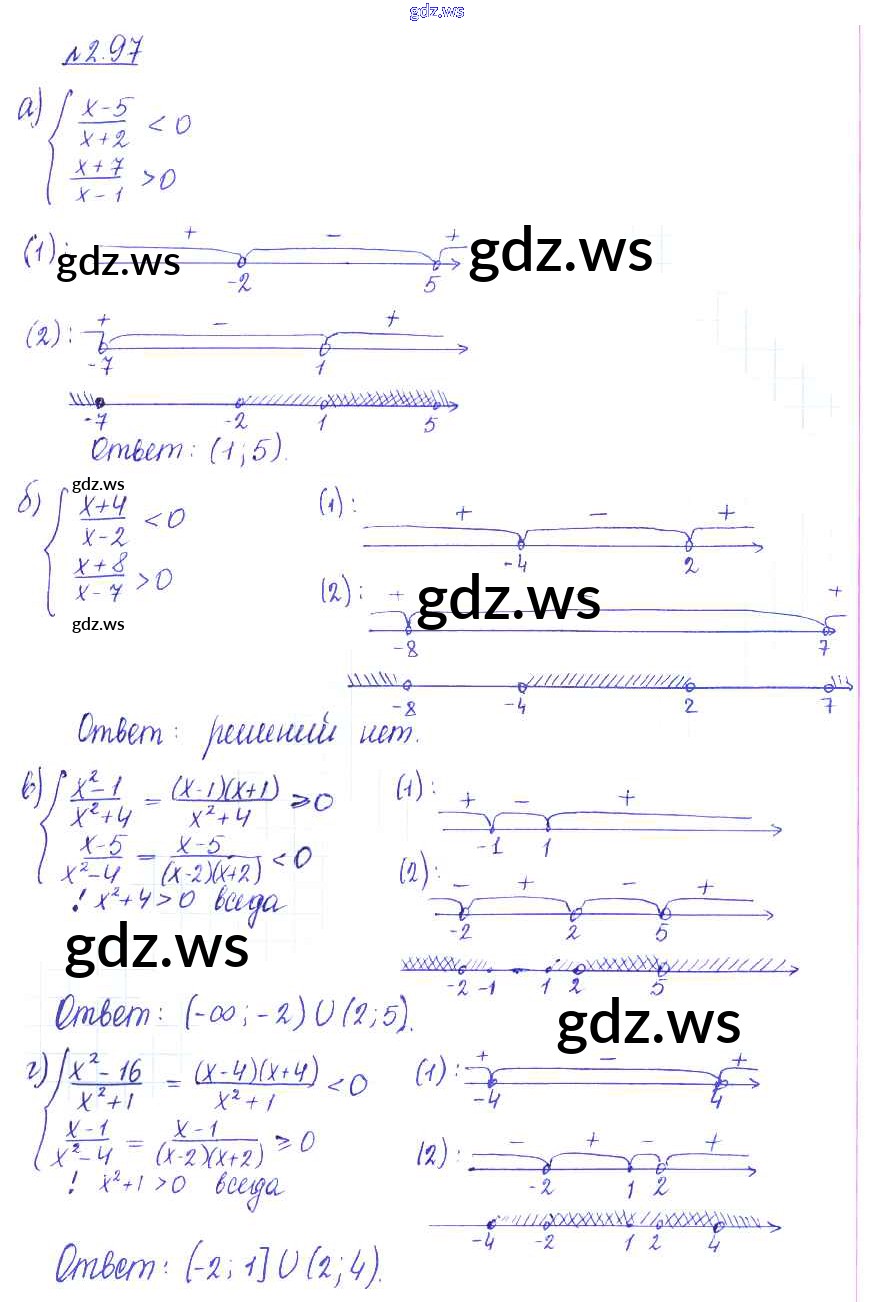 gdz.ws
№2.97
а) { (x-5)/(x+2) < 0
(x+7)/(x-1) > 0
(1): + - +
-2 5
gdz.ws gdz.ws
(2): + - +
-7 1
-7 -2 1 5
Ответ: (1; 5).
gdz.ws
б) { (x+4)/(x-2) < 0
(x+8)/(x-7) > 0
gdz.ws
(1): + - +
-4 2
(2): + +
gdz.ws
-8 7
-8 -4 2 7
Ответ: решений нет.
в) { (x²-1)/(x²+4) = (x-1)(x+1)/(x²+4) ≥ 0
(x-5)/(x²-4) = (x-5)/((x-2)(x+2)) < 0
! x²+4 > 0 всегда
(1): + - +
-1 1
(2): - + - +
-2 2 5
gdz.ws
-2 -1 1 2 5
Ответ: (-∞; -2) U (2; 5).
gdz.ws
г) { (x²-16)/(x²+1) = (x-4)(x+4)/(x²+1) < 0
(x-1)/(x²-4) = (x-1)/((x-2)(x+2)) ≥ 0
! x²+1 > 0 всегда
(1): + - +
-4 4
(2): - + - +
-2 1 2
-4 -2 1 2 4
Ответ: (-2; 1] U (2; 4).